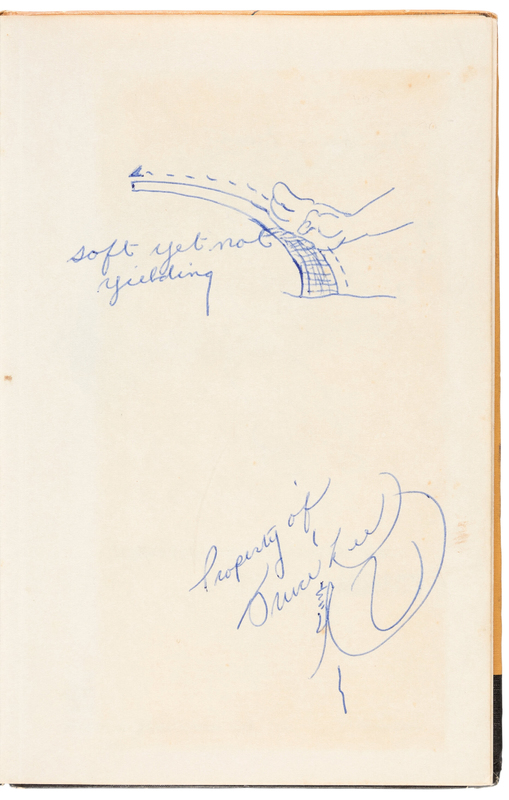 soft yet not
yielding
Property of
Bruce Lee